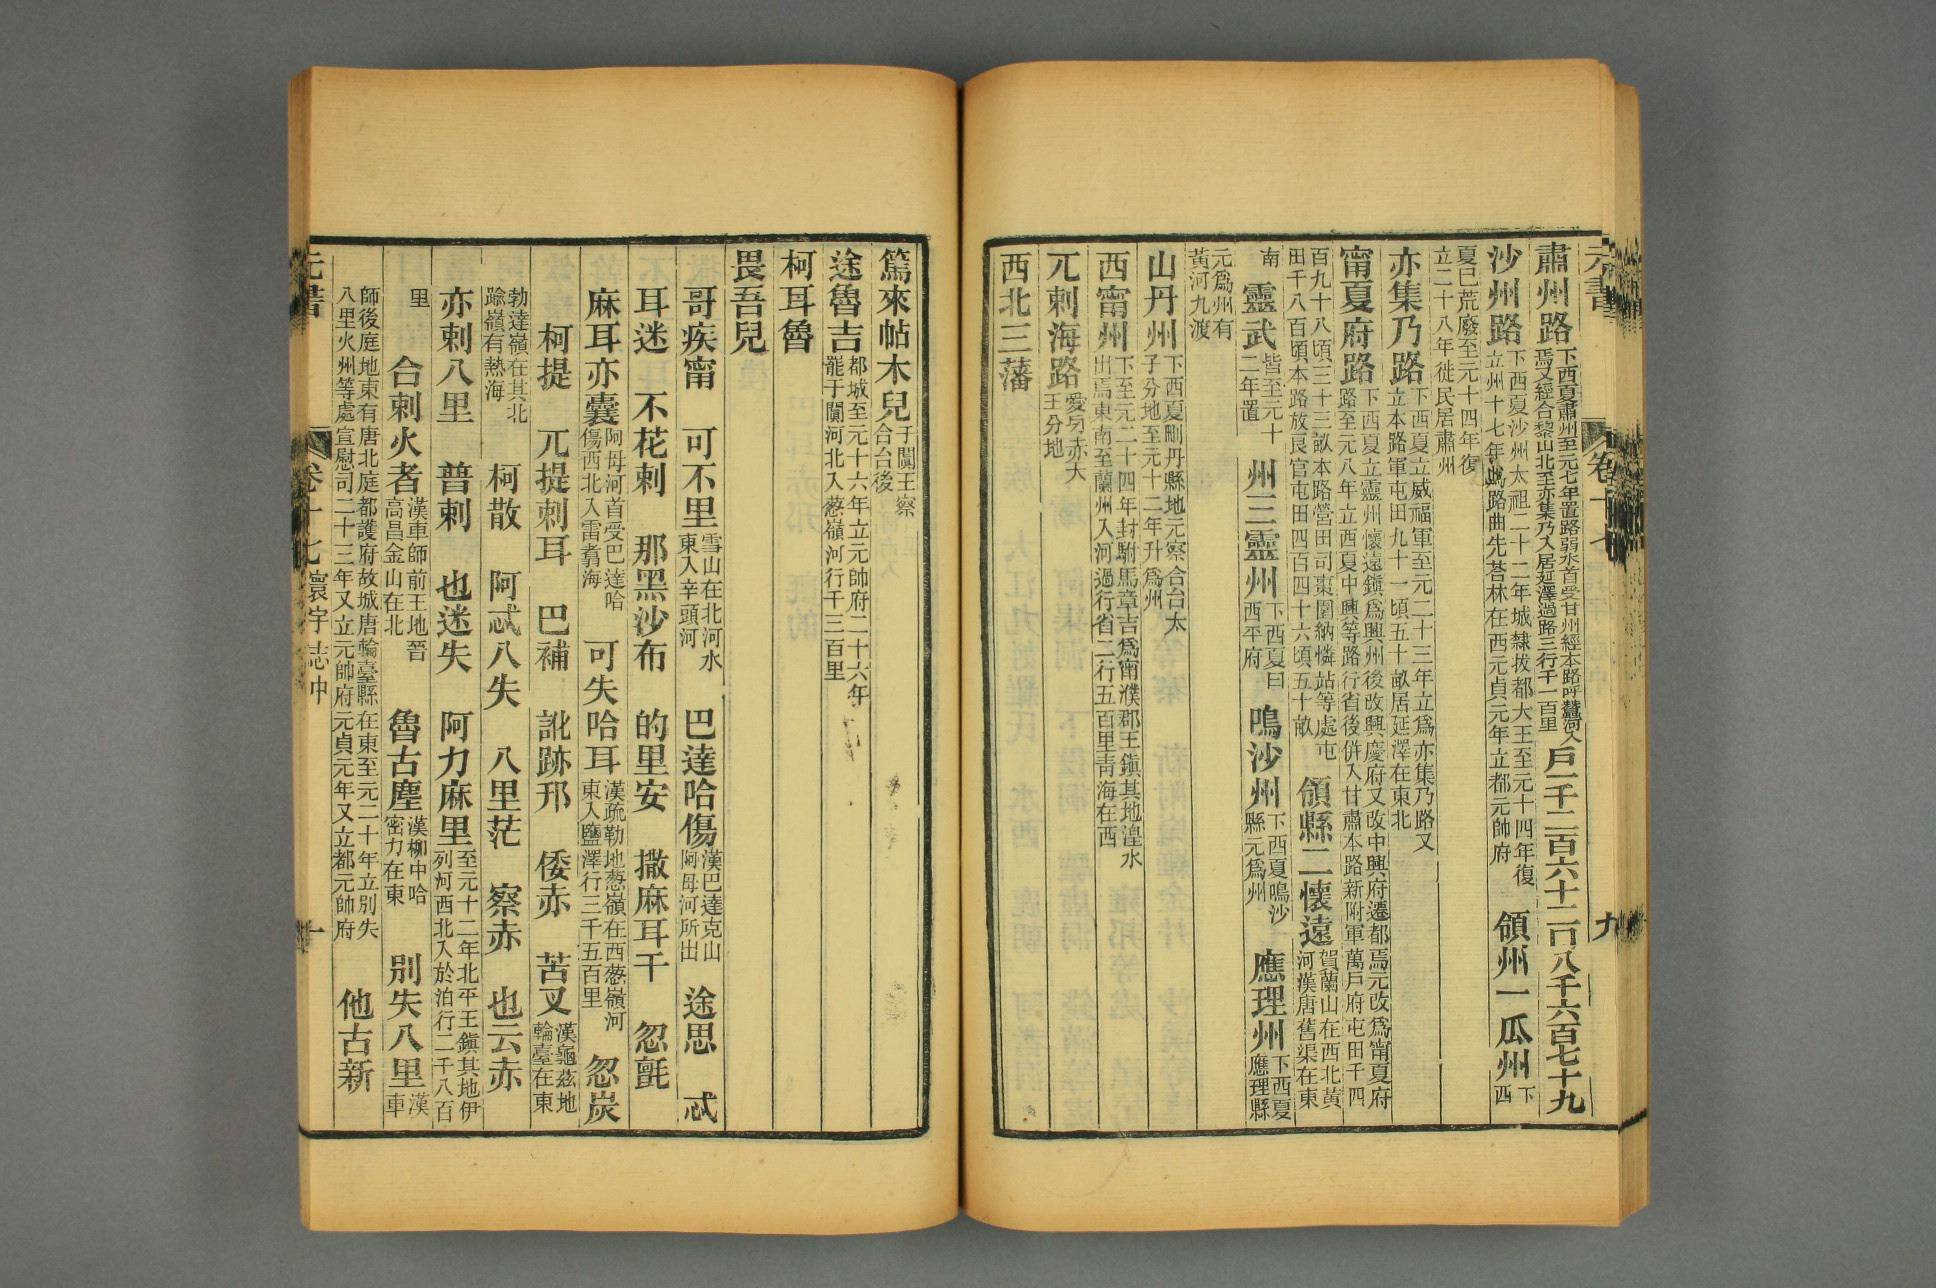 元書 卷十七 九
肅州路下西夏肅州至元七年置路弱水首受甘州經本路呼蠶河入焉又經合黎山北至亦集乃入居延澤過路三行千一百里戶一千二百六十二口八千六百七十九
沙州路下西夏沙州太祖二十二年城隸拔都大王至元十四年復立州十七年爲路曲先荅林在西元貞元年立都元帥府 領州一瓜州下西
夏巳荒廢至元十四年復立二十八年徙民居肅州
亦集乃路下西夏立威福軍至元二十三年立爲亦集乃路又立本路軍屯田九十一頃五十畝居延澤在東北
甯夏府路下西夏立靈州懷遠鎮爲興州後改興慶府又改中興府遷都焉元改爲甯夏府路至元八年立西夏中興等路行省後併入甘肅本路新附軍萬戶府屯田千四
百九十八頃三十三畝本路營田司棗園納憐站等處屯田千八百頃本路放良官屯田四百四十六頃五十畝 領縣二懷遠賀蘭山在西北黃河漢唐舊渠在東
南 靈武皆至元十二年置 州三靈州下西夏曰西平府 鳴沙州下西夏鳴沙縣元爲州 應理州下西夏應理縣
元爲州有黃河九渡
山丹州下西夏刪丹縣地元察合台太子分地至元十二年升爲州
西甯州下至元二十四年封駙馬章吉爲甯濮郡王鎮其地湟水出焉東南至蘭州入河過行省二行五百里靑海在西
兀剌海路愛另赤大王分地
西北三藩
篤來帖木兒于闐王察合台後
途魯吉都城至元十六年立元帥府二十六年罷于闐河北入葱嶺河行千三百里
柯耳魯
畏吾兒
哥疾甯 可不里雪山在北河水東入辛頭河 巴達哈傷漢巴達克山阿母河所出 途思 忒
耳迷 不花剌 那黑沙布 的里安 撒麻耳干 忽氈
麻耳亦囊阿母河首受巴達哈傷西北入雷翥海 可失哈耳漢疏勒地葱嶺在西葱嶺河東入鹽澤行三千五百里 忽炭
柯提 兀提剌耳 巴補 訛跡邗 倭赤 苦叉漢龜茲地輪臺在東
勃達嶺在其北踰嶺有熱海 柯散 阿忒八失 八里茫 察赤 也云赤
亦剌八里 普剌 也迷失 阿力麻里至元十二年北平王鎮其地伊列河西北入於泊行二千八百
里 合剌火者漢車師前王地晉高昌金山在北 魯古塵漢柳中哈密力在東 別失八里漢車
師後庭地東有唐北庭都護府故城唐輪臺縣在東至元二十年立別失八里火州等處宣慰司二十三年又立元帥府元貞元年又立都元帥府 他古新
元書 卷十七寰宇志中 十